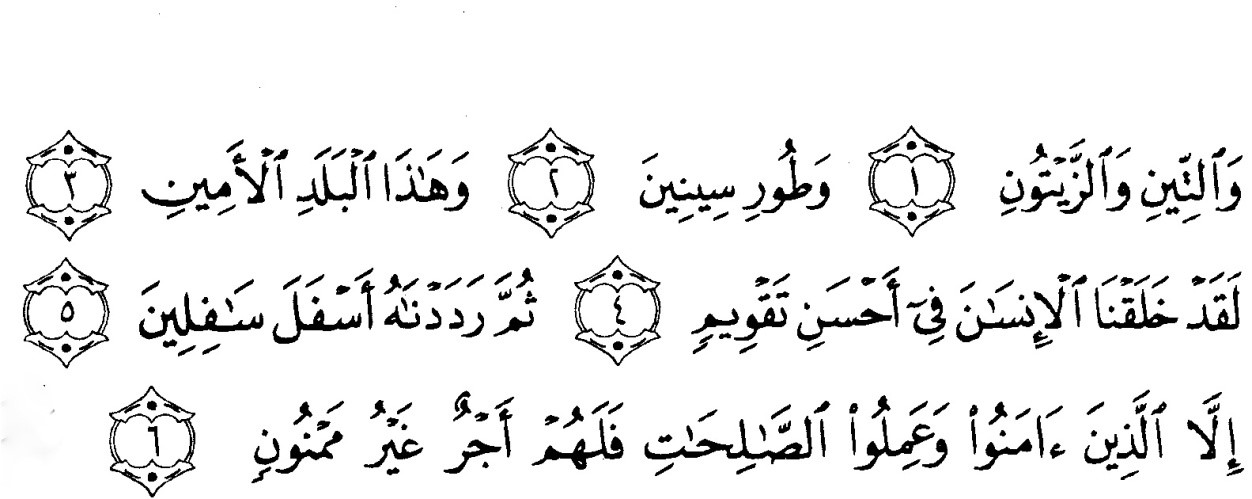 وَٱلتِّينِ وَٱلزَّيْتُونِ ١ وَطُورِ سِينِينَ ٢ وَهَٰذَا ٱلْبَلَدِ ٱلْأَمِينِ ٣
لَقَدْ خَلَقْنَا ٱلْإِنسَٰنَ فِىٓ أَحْسَنِ تَقْوِيمٍ ٤ ثُمَّ رَدَدْنَٰهُ أَسْفَلَ سَٰفِلِينَ ٥
إِلَّا ٱلَّذِينَ ءَامَنُوا۟ وَعَمِلُوا۟ ٱلصَّٰلِحَٰتِ فَلَهُمْ أَجْرٌ غَيْرُ مَمْنُونٍ ٦